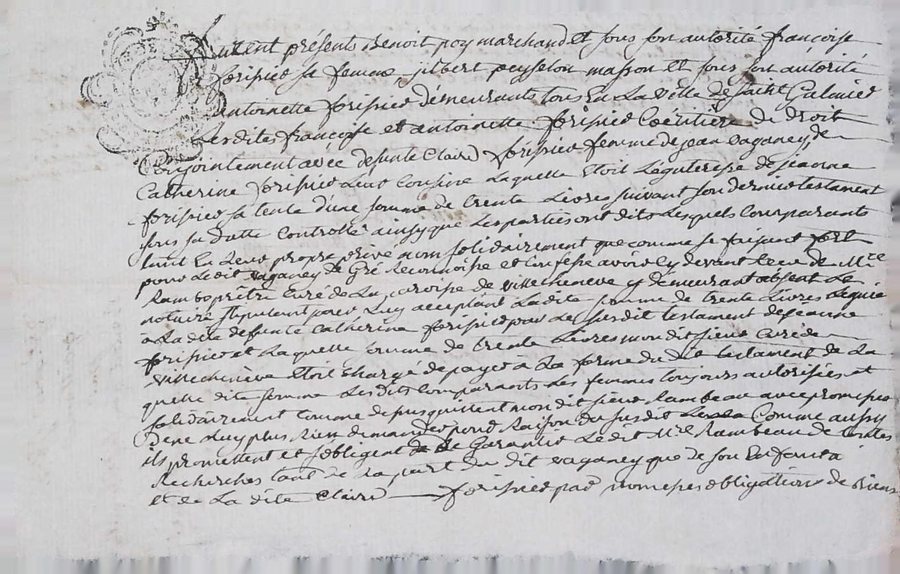 furent présents Benoit poy marchand et sous son autorité françoise
forissier sa femme, jilbert peysselon masson et sous son autorité
antoinette forissier demeurants tous En La ville de saint Galmier
Lesdites françoise et antoinette forissier Coeritiere de Droit
Conjointement avec defunte Claire forissier femme de jean vaganey, de
Catherine forissier Leur Cousine Laquelle Etoit Légateresse de jeanne
forissier sa tente d'une somme de trente Livres suivant son dernier testament
sous sa datte Controllé ainsy que Les parties ont dits Lesquels Comparants
tant En Leur propre privé nom solidairement que comme se faisant fort
pour Ledit vaganey de Gré Reconnoisse et Confesse avoir cy devant Receu de Mre
Rambo prêtre Curé de La paroisse de villecheneve y demeurant absent Le
notaire stipulant pour Luy acceptant Ladite somme de trente Livres Léguée
a La dite defunte Catherine forissier par Le susdit testament de jeanne
forissier et Laquelle somme de trente Livres mon dit sieur Curé de
villechenève Etoit Chargé de payer à La forme du dit testament de La
quelle dite somme Lesdits Comparants Les femmes toujours autorisées et
solidairement Comme dessus quittent mon dit sieur Rambeau avec promesse
De ne Luy plus Rien demander pour Raison du susdit Comme aussy
ils promettent et s'obligent de Garantir Ledit Mre Rambeau de toutes
Recherches tant de La part du dit vaganey que de son Enfant à
et de La dite Claire forissier par nomepres obligations de Biens